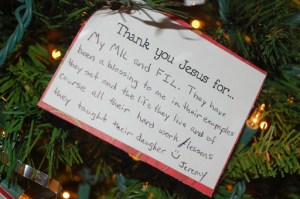 Thank you Jesus for...
My MIL and FIL. They have
been a blessing to me in their examples
they set and the life they live and of
course all their hard work/lessons
they taught their daughter ☺
Jeremy